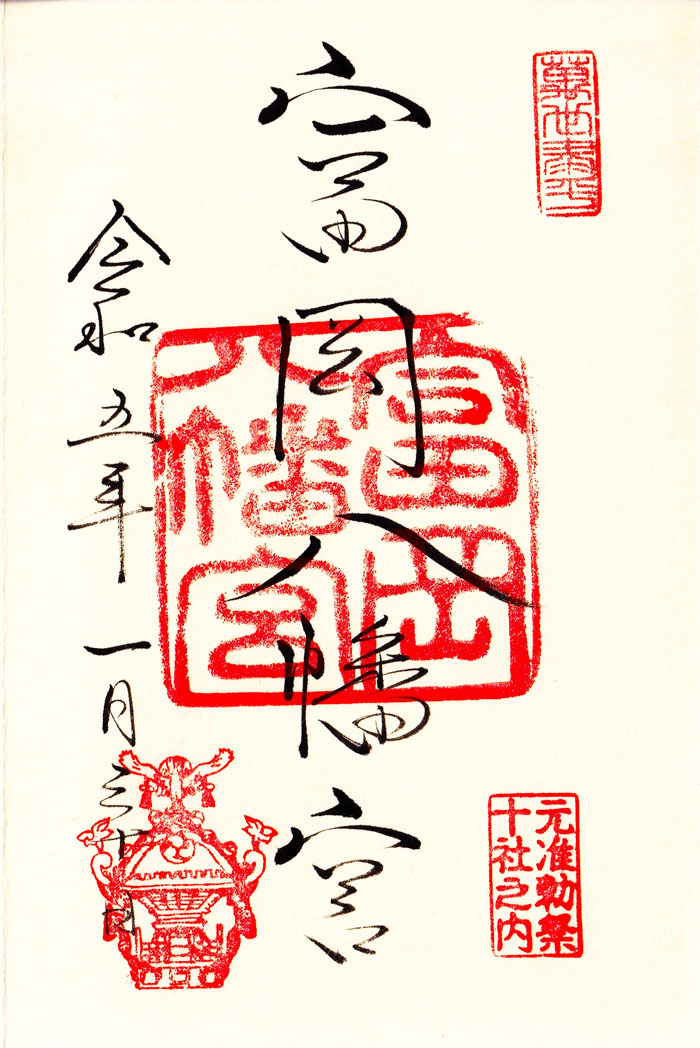 萬世泰平
富岡八幡宮
富岡
八幡宮
元准勅祭
十社之内
令和五年一月三十日